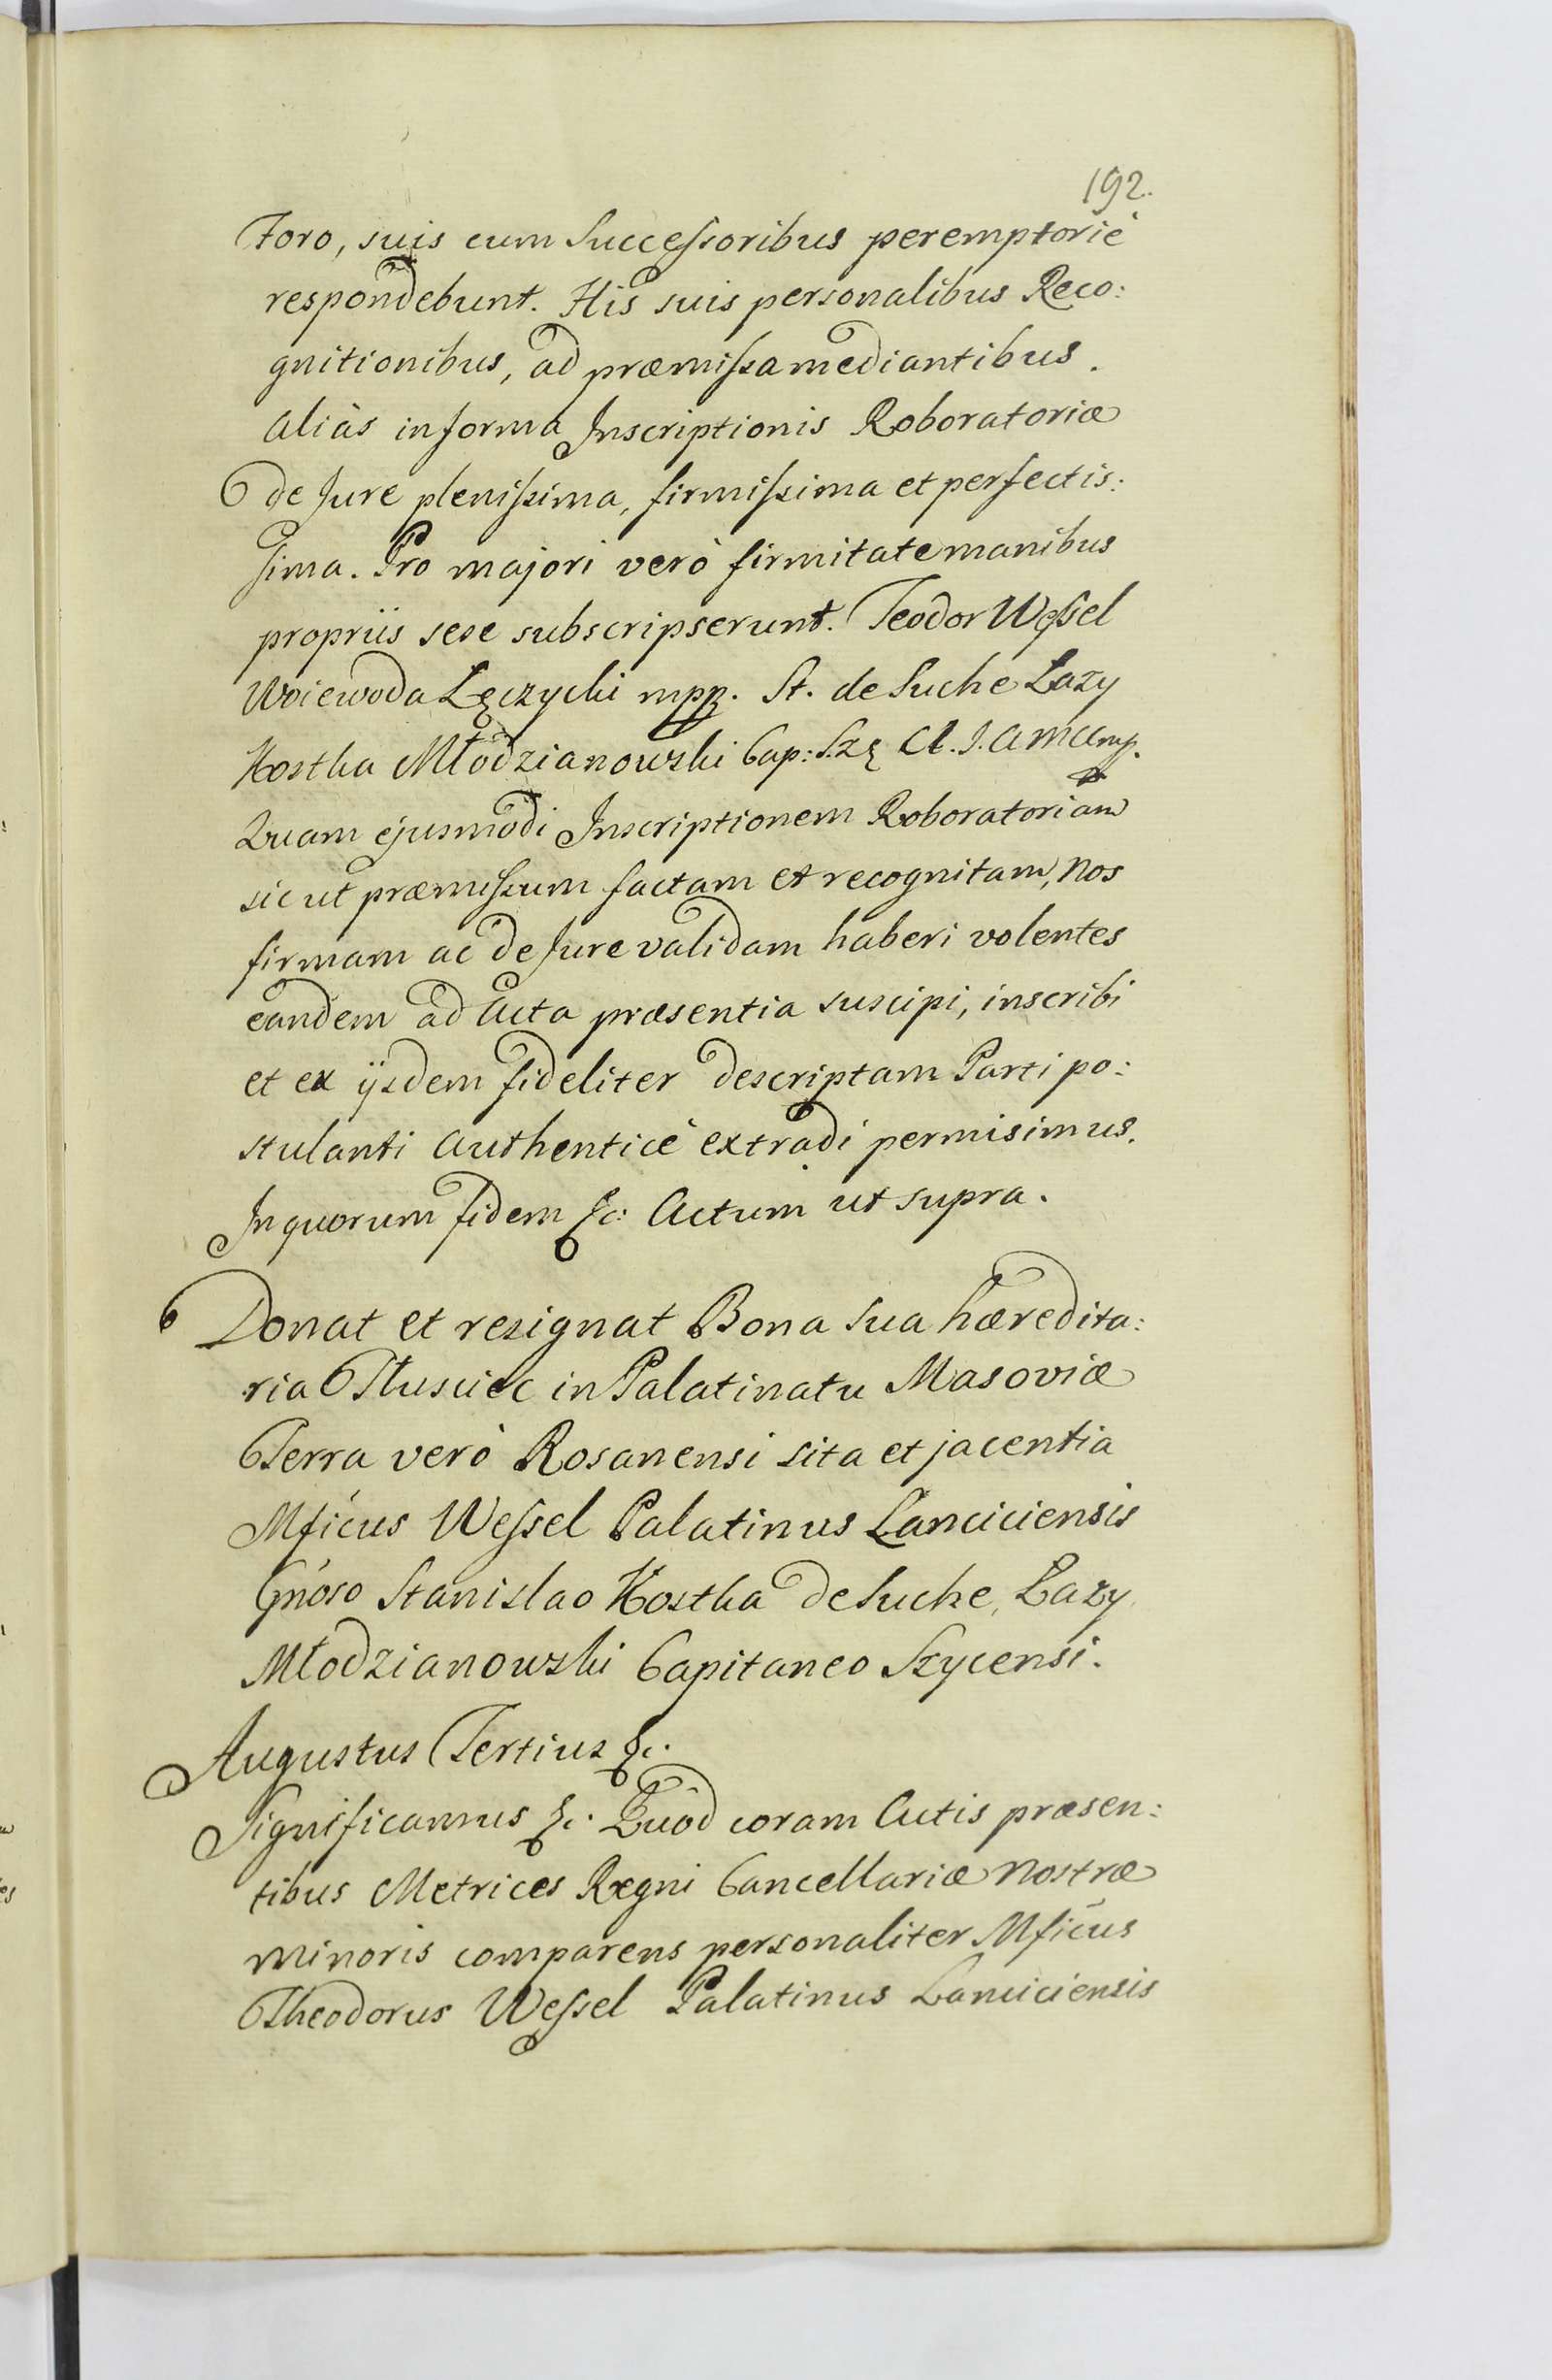 192.
Foro, suis cum Successoribus peremptoriè
respondebunt. His suis personalibus Reco:
gnitionibus, ad præmissa mediantibus.
aliàs in forma Inscriptionis Roboratoriæ
de Jure plenissima, firmissima et perfectis:
sima. Pro majori verò firmitate manibus
propriis sese subscripserunt. Teodor Wessel
Woiewoda Lęczycki mpp. St. de Suche Łazy
Kostka Młodzianowski Cap: Szę
Quam ejusmodi Inscriptionem Roboratoriam
sic ut præmissum factam et recognitam, nos
firmam ac de Jure validam haberi volentes
eandem ad Acta præsentia suscipi, inscribi
et ex ijsdem fideliter descriptam Parti po:
stulanti Authenticè extradi permisimus.
In quorum fidem &c: Actum ut supra.
Donat et resignat Bona sua hæredita:
ria Tłusciec in Palatinatu Masoviæ
Terra verò Rosanensi sita et jacentia
Mficus Wessel Palatinus Lanciciensis
Gnoso Stanislao Kostka de Suche, Łazy
Młodzianowski Capitaneo Szycensi.
Augustus Tertius &c.
Significamus &c. Quod coram Actis præsen:
tibus Metrices Regni Cancellariæ nostræ
minoris comparens personaliter Mficus
Theodorus Wessel Palatinus Lanciciensis